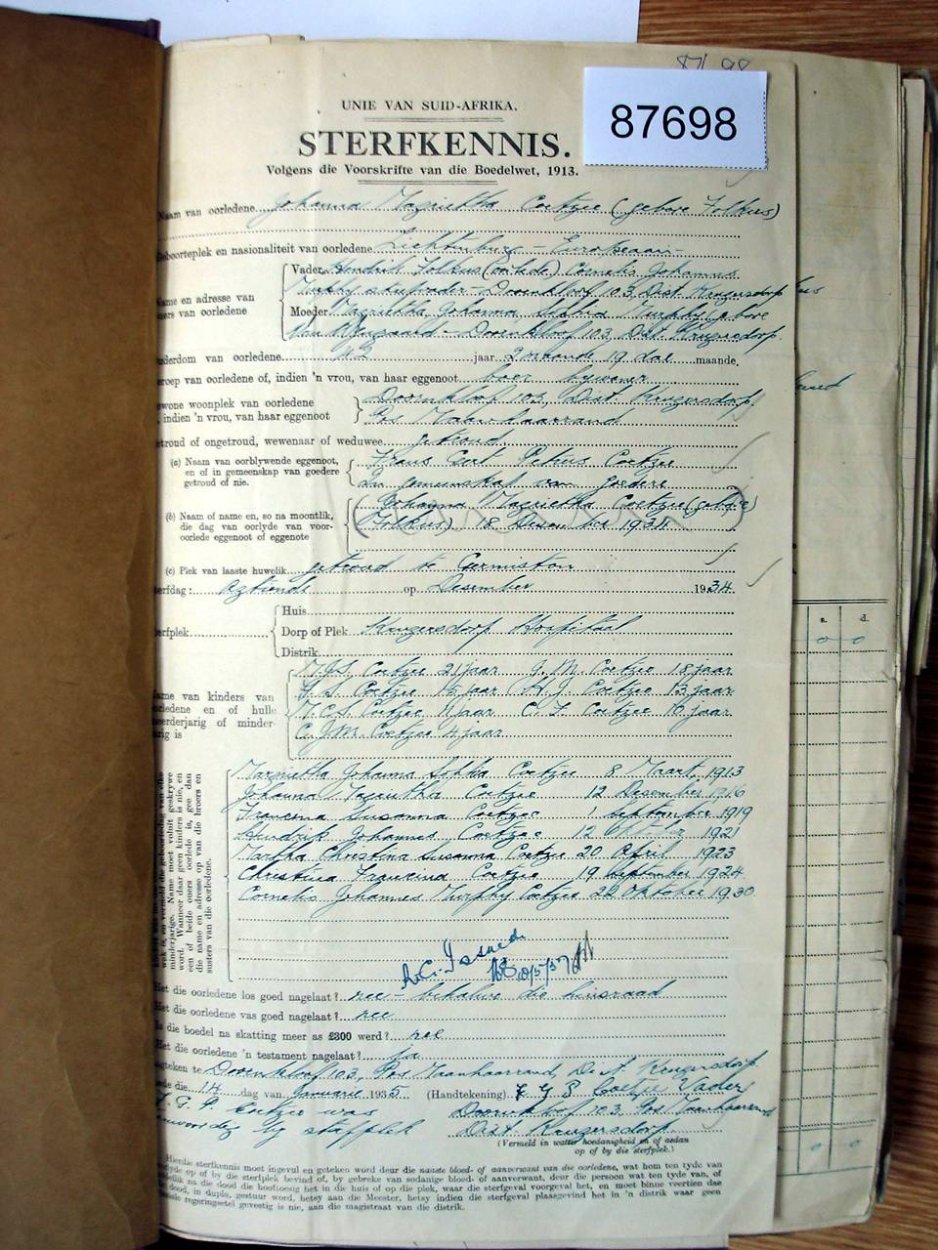 87698
UNIE VAN SUID-AFRIKA.
STERFKENNIS.
Volgens die Voorskrifte van die Boedelwet, 1913.
Naam van oorledene Johanna Coetzee (gebore
eboorteplek en nasionaliteit van oorledene Lichtenburg – Europeaan –
Vader Hendrik (oorlede) Cornelis Johannes
Murphy stiefvader – Doornkloof 103, Dist. Krugersdorp
ame en adresse van
ers van oorledene
Moeder Johanna Murphy gebore
Doornkloof 103, Dist. Krugersdorp
uderdom van oorledene jaar 9 maande 19 dae maande.
eroep van oorledene of, indien 'n vrou, van haar eggenoot boer bywoner
wone woonplek van oorledene
indien 'n vrou, van haar eggenoot
Doornkloof 103, Dist. Krugersdorp
Pos Maanhaarrand
etroud of ongetroud, wewenaar of weduwee getroud
(a) Naam van oorblywende eggenoot,
en of in gemeenskap van goedere
getroud of nie.
Frans Gert Petrus Coetzee
in gemeenskap van goedere
(b) Naam of name en, so na moontlik,
die dag van oorlyde van voor-
oorlede eggenoot of eggenote
Johanna Coetzee (gebore
18 Desember 1934
(c) Plek van laaste huwelik getroud te Germiston
erfdag: agtiende op Desember 1934
erfplek
Huis
Dorp of Plek Krugersdorp Hospitaal
Distrik
Coetzee 21 jaar J. M. Coetzee 18 jaar
F. S. Coetzee 15 jaar H. J. Coetzee 13 jaar
M. C. S. Coetzee 11 jaar C. F. Coetzee 10 jaar
C. J. M. Coetzee 4 jaar
ame van kinders van
orledene en of hulle
eerderjarig of minder-
rig is
Johanna Coetzee 8 Maart, 1913
Johanna Coetzee 12 Desember 1916
Francina Susanna Coetzee 1 September 1919
Hendrik Johannes Coetzee 12 Oktober 1921
Martha Christina Susanna Coetzee 20 April 1923
Christina Francina Coetzee 19 September 1924
Cornelis Johannes Murphy Coetzee 22 Oktober 1930
minderjarige. Name moet voluit geskrywe
word. Wanneer daar geen kinders is nie, en
een of beide ouers oorlede is, gee dan
die name en adresse op van die broers en
susters van die oorledene.
et die oorledene los goed nagelaat? nee – behalwe die huisraad
et die oorledene vas goed nagelaat? nee
s die boedel na skatting meer as £300 werd? nee
et die oorledene 'n testament nagelaat? ja
geteken te Doornkloof 103, Pos Maanhaarrand, Dist. Krugersdorp
ede die 14 dag van Januarie 1935 (Handtekening) Coetzee Vader
Coetzee was Doornkloof 103 Pos Maanhaarrand
Dist Krugersdorp
(Vermeld in watter hoedanigheid en of aedan
op of by die sterfplek.)
Hierdie sterfkennis moet ingevul en geteken word deur die naaste bloed- of aanverwant van die oorledene, wat hom ten tyde van
op of by die sterfplek bevind of, by gebreke van sodanige bloed- of aanverwant, deur die persoon wat ten tyde van, of
na die dood die hooftoesig het in die huis of op die plek, waar die sterfgeval voorgeval het, en moet binne veertien dae
dood, in duplo, gestuur word, hetsy aan die Meester, hetsy indien die sterfgeval plaasgevind het in 'n distrik waar geen
regeringsetel gevestig is nie, aan die magistraat van die distrik.
s. d.